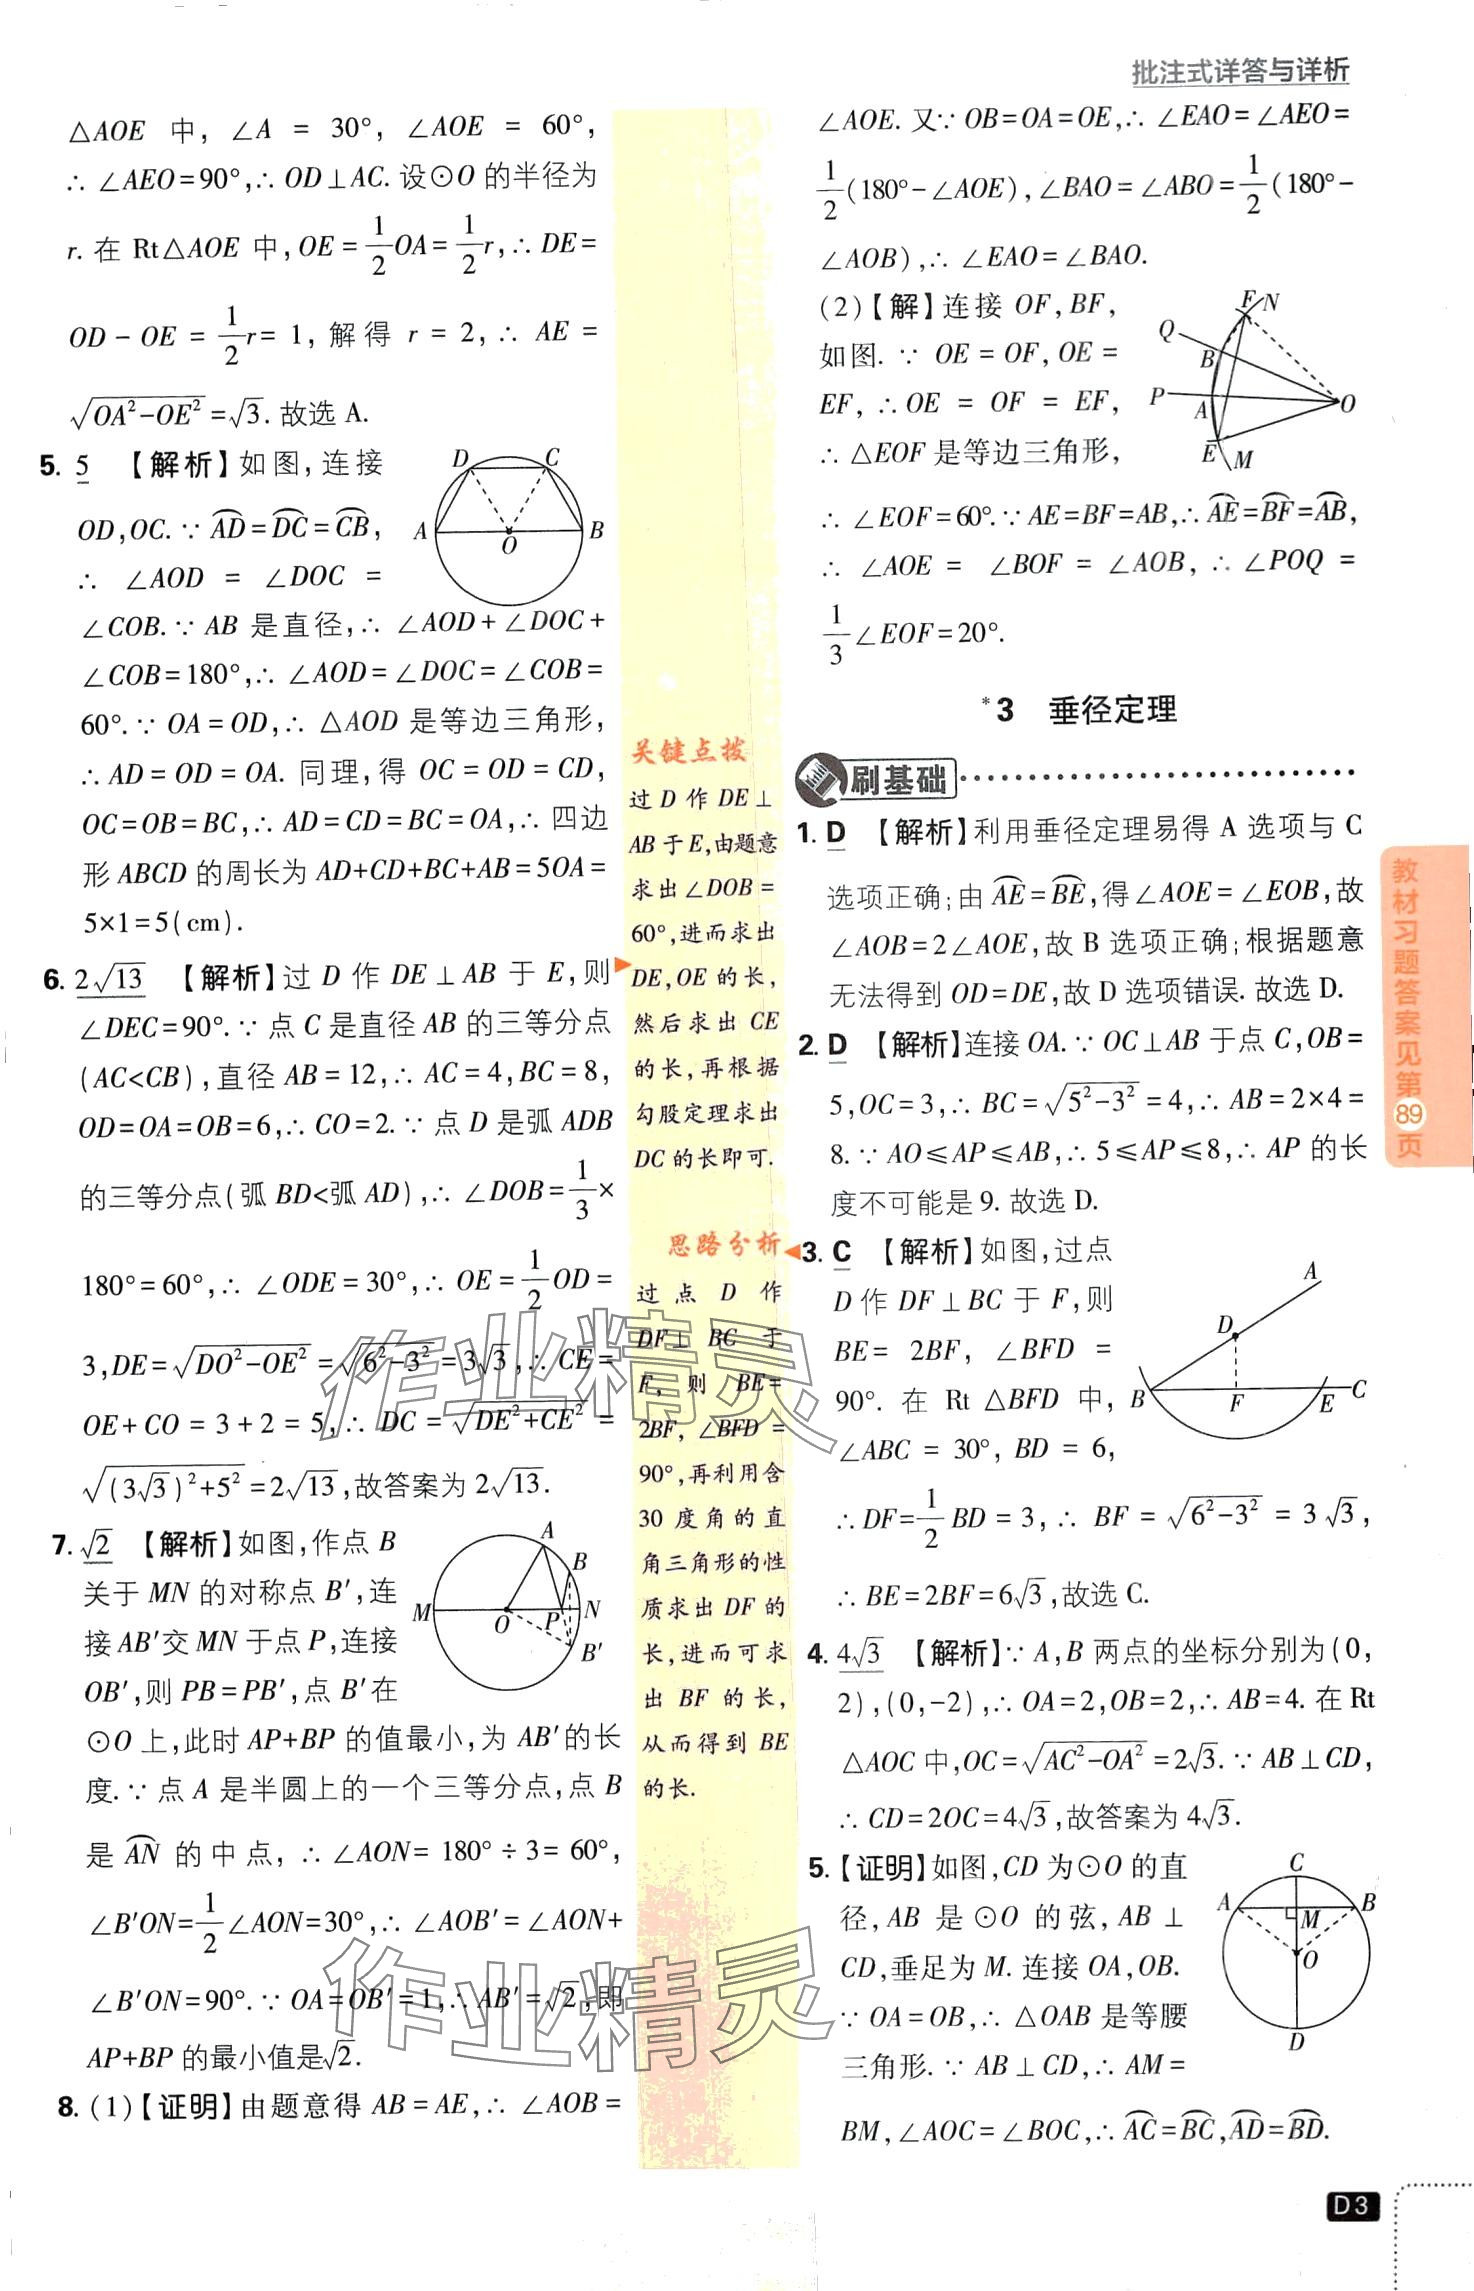 批注式详答与详析
△AOE 中, ∠A = 30°, ∠AOE = 60°,
∴ ∠AEO=90°,∴ OD⊥AC. 设⊙O 的半径为
r. 在 Rt△AOE 中, OE=1/2OA=1/2r,∴ DE=
OD-OE = 1/2r=1, 解得 r=2,∴ AE =
√(OA²-OE²)=√3. 故选 A.
5. 5 【解析】如图,连接
OD,OC. ∵ ⌒AD=⌒DC=⌒CB,
∴ ∠AOD = ∠DOC =
∠COB. ∵ AB 是直径,∴ ∠AOD+∠DOC+
∠COB=180°,∴ ∠AOD=∠DOC=∠COB=
60°. ∵ OA=OD,∴ △AOD 是等边三角形,
∴ AD=OD=OA. 同理,得 OC=OD=CD,
OC=OB=BC,∴ AD=CD=BC=OA,∴ 四边
形 ABCD 的周长为 AD+CD+BC+AB=5OA=
5×1=5(cm).
D C A B O
6. 2√13 【解析】过 D 作 DE⊥AB 于 E,则
∠DEC=90°. ∵ 点 C 是直径 AB 的三等分点
(AC<CB),直径 AB=12,∴ AC=4,BC=8,
OD=OA=OB=6,∴ CO=2. ∵ 点 D 是弧 ADB
的三等分点(弧 BD<弧 AD),∴ ∠DOB=1/3×
180°=60°,∴ ∠ODE=30°,∴ OE=1/2OD=
3,DE=√(DO²-OE²)=√(6²-3²)=3√3,∴ CE=
OE+CO=3+2=5,∴ DC=√(DE²+CE²)=
√((3√3)²+5²)=2√13,故答案为 2√13.
7. √2 【解析】如图,作点 B
关于 MN 的对称点 B′,连
接 AB′交 MN 于点 P,连接
OB′,则 PB=PB′,点 B′在
⊙O 上,此时 AP+BP 的值最小,为 AB′的长
度. ∵ 点 A 是半圆上的一个三等分点,点 B
是 ⌒AN 的中点,∴ ∠AON=180°÷3=60°,
∠B′ON=1/2∠AON=30°,∴ ∠AOB′=∠AON+
∠B′ON=90°. ∵ OA=OB′=1,∴ AB′=√2,即
AP+BP 的最小值是√2.
A B M O P N B′
8. (1)【证明】由题意得 AB=AE,∴ ∠AOB=
关键点拨
过 D 作 DE⊥
AB 于 E,由题意
求出∠DOB=
60°,进而求出
DE,OE 的长,
然后求出 CE
的长,再根据
勾股定理求出
DC 的长即可.
思路分析
过点 D 作
DF⊥BC 于
F,则 BE=
2BF,∠BFD=
90°,再利用含
30 度角的直
角三角形的性
质求出 DF 的
长,进而可求
出 BF 的长,
从而得到 BE
的长.
∠AOE. 又∵ OB=OA=OE,∴ ∠EAO=∠AEO=
1/2(180°-∠AOE),∠BAO=∠ABO=1/2(180°-
∠AOB),∴ ∠EAO=∠BAO.
(2)【解】连接 OF,BF,
如图. ∵ OE=OF,OE=
EF,∴OE = OF = EF,
∴ △EOF 是等边三角形,
∴ ∠EOF=60°. ∵ AE=BF=AB,∴ ⌒AE=⌒BF=⌒AB,
∴ ∠AOE = ∠BOF = ∠AOB,∴ ∠POQ =
1/3∠EOF=20°.
F N Q B P A O E M
*3 垂径定理
刷基础
1. D 【解析】利用垂径定理易得 A 选项与 C
选项正确;由 ⌒AE=⌒BE,得∠AOE=∠EOB,故
∠AOB=2∠AOE,故 B 选项正确;根据题意
无法得到 OD=DE,故 D 选项错误. 故选 D.
2. D 【解析】连接 OA. ∵ OC⊥AB 于点 C,OB=
5,OC=3,∴ BC=√(5²-3²)=4,∴ AB=2×4=
8. ∵ AO≤AP≤AB,∴ 5≤AP≤8,∴ AP 的长
度不可能是 9. 故选 D.
3. C 【解析】如图,过点
D 作 DF⊥BC 于 F,则
BE= 2BF, ∠BFD =
90°. 在 Rt △BFD 中,
∠ABC = 30°, BD = 6,
∴ DF=1/2BD=3,∴ BF=√(6²-3²)=3√3,
∴ BE=2BF=6√3,故选 C.
A D B F E C
4. 4√3 【解析】∵ A,B 两点的坐标分别为(0,
2),(0,-2),∴ OA=2,OB=2,∴ AB=4. 在 Rt
△AOC 中,OC=√(AC²-OA²)=2√3. ∵ AB⊥CD,
∴ CD=2OC=4√3,故答案为 4√3.
5.【证明】如图,CD 为⊙O 的直
径,AB 是⊙O 的弦,AB⊥
CD,垂足为 M. 连接 OA,OB.
∵ OA=OB,∴ △OAB 是等腰
三角形. ∵ AB⊥CD,∴ AM=
BM,∠AOC=∠BOC,∴ ⌒AC=⌒BC,⌒AD=⌒BD.
C A M B O D
教材习题答案见第89页
作业精灵
作业精灵
D3